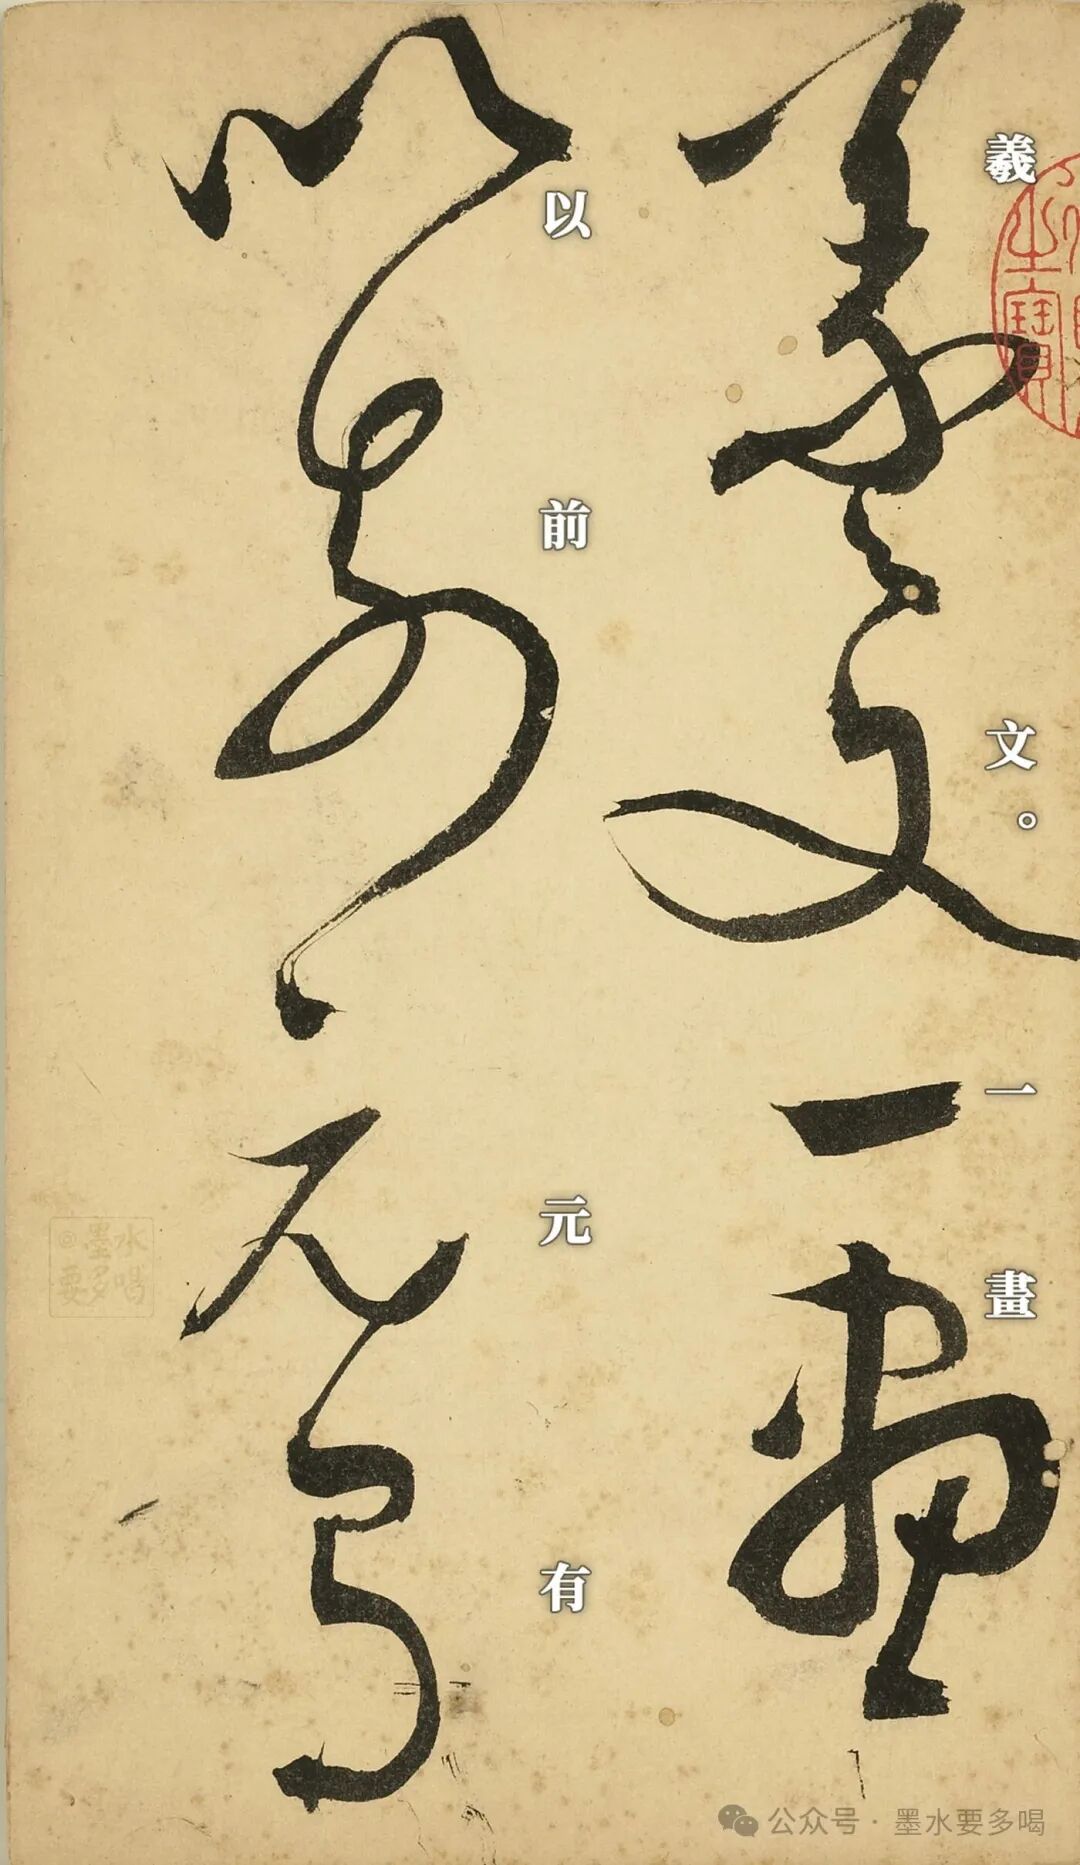 羲文。一畫
以前元有
之寶
@墨水
要多喝
公众号 · 墨水要多喝